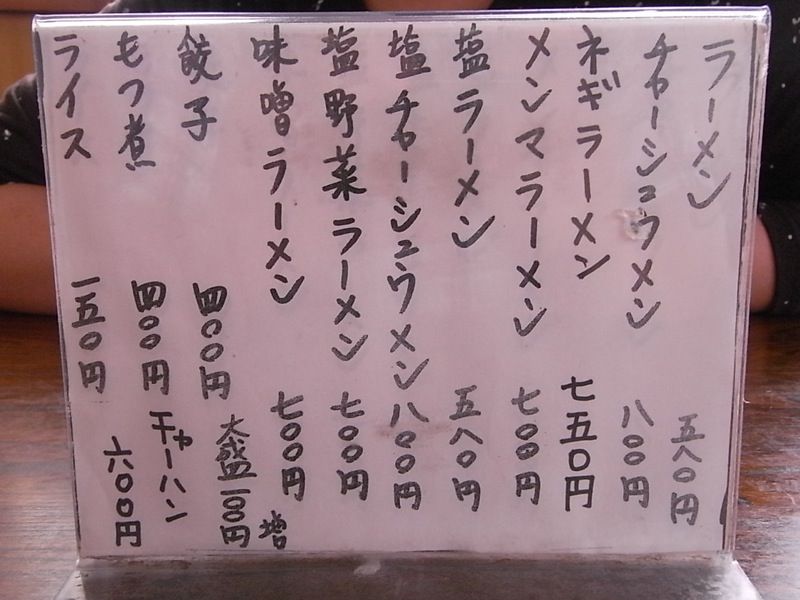 ラーメン 五八〇円
チャーシュウメン 八〇〇円
ネギラーメン 七五〇円
メンマラーメン 七〇〇円
塩ラーメン 五八〇円
塩チャーシュウメン 八〇〇円
塩野菜ラーメン 七〇〇円
味噌ラーメン 七〇〇円
大盛一〇〇円増
餃子 四〇〇円
もつ煮 四〇〇円
チャーハン 六〇〇円
ライス 一五〇円